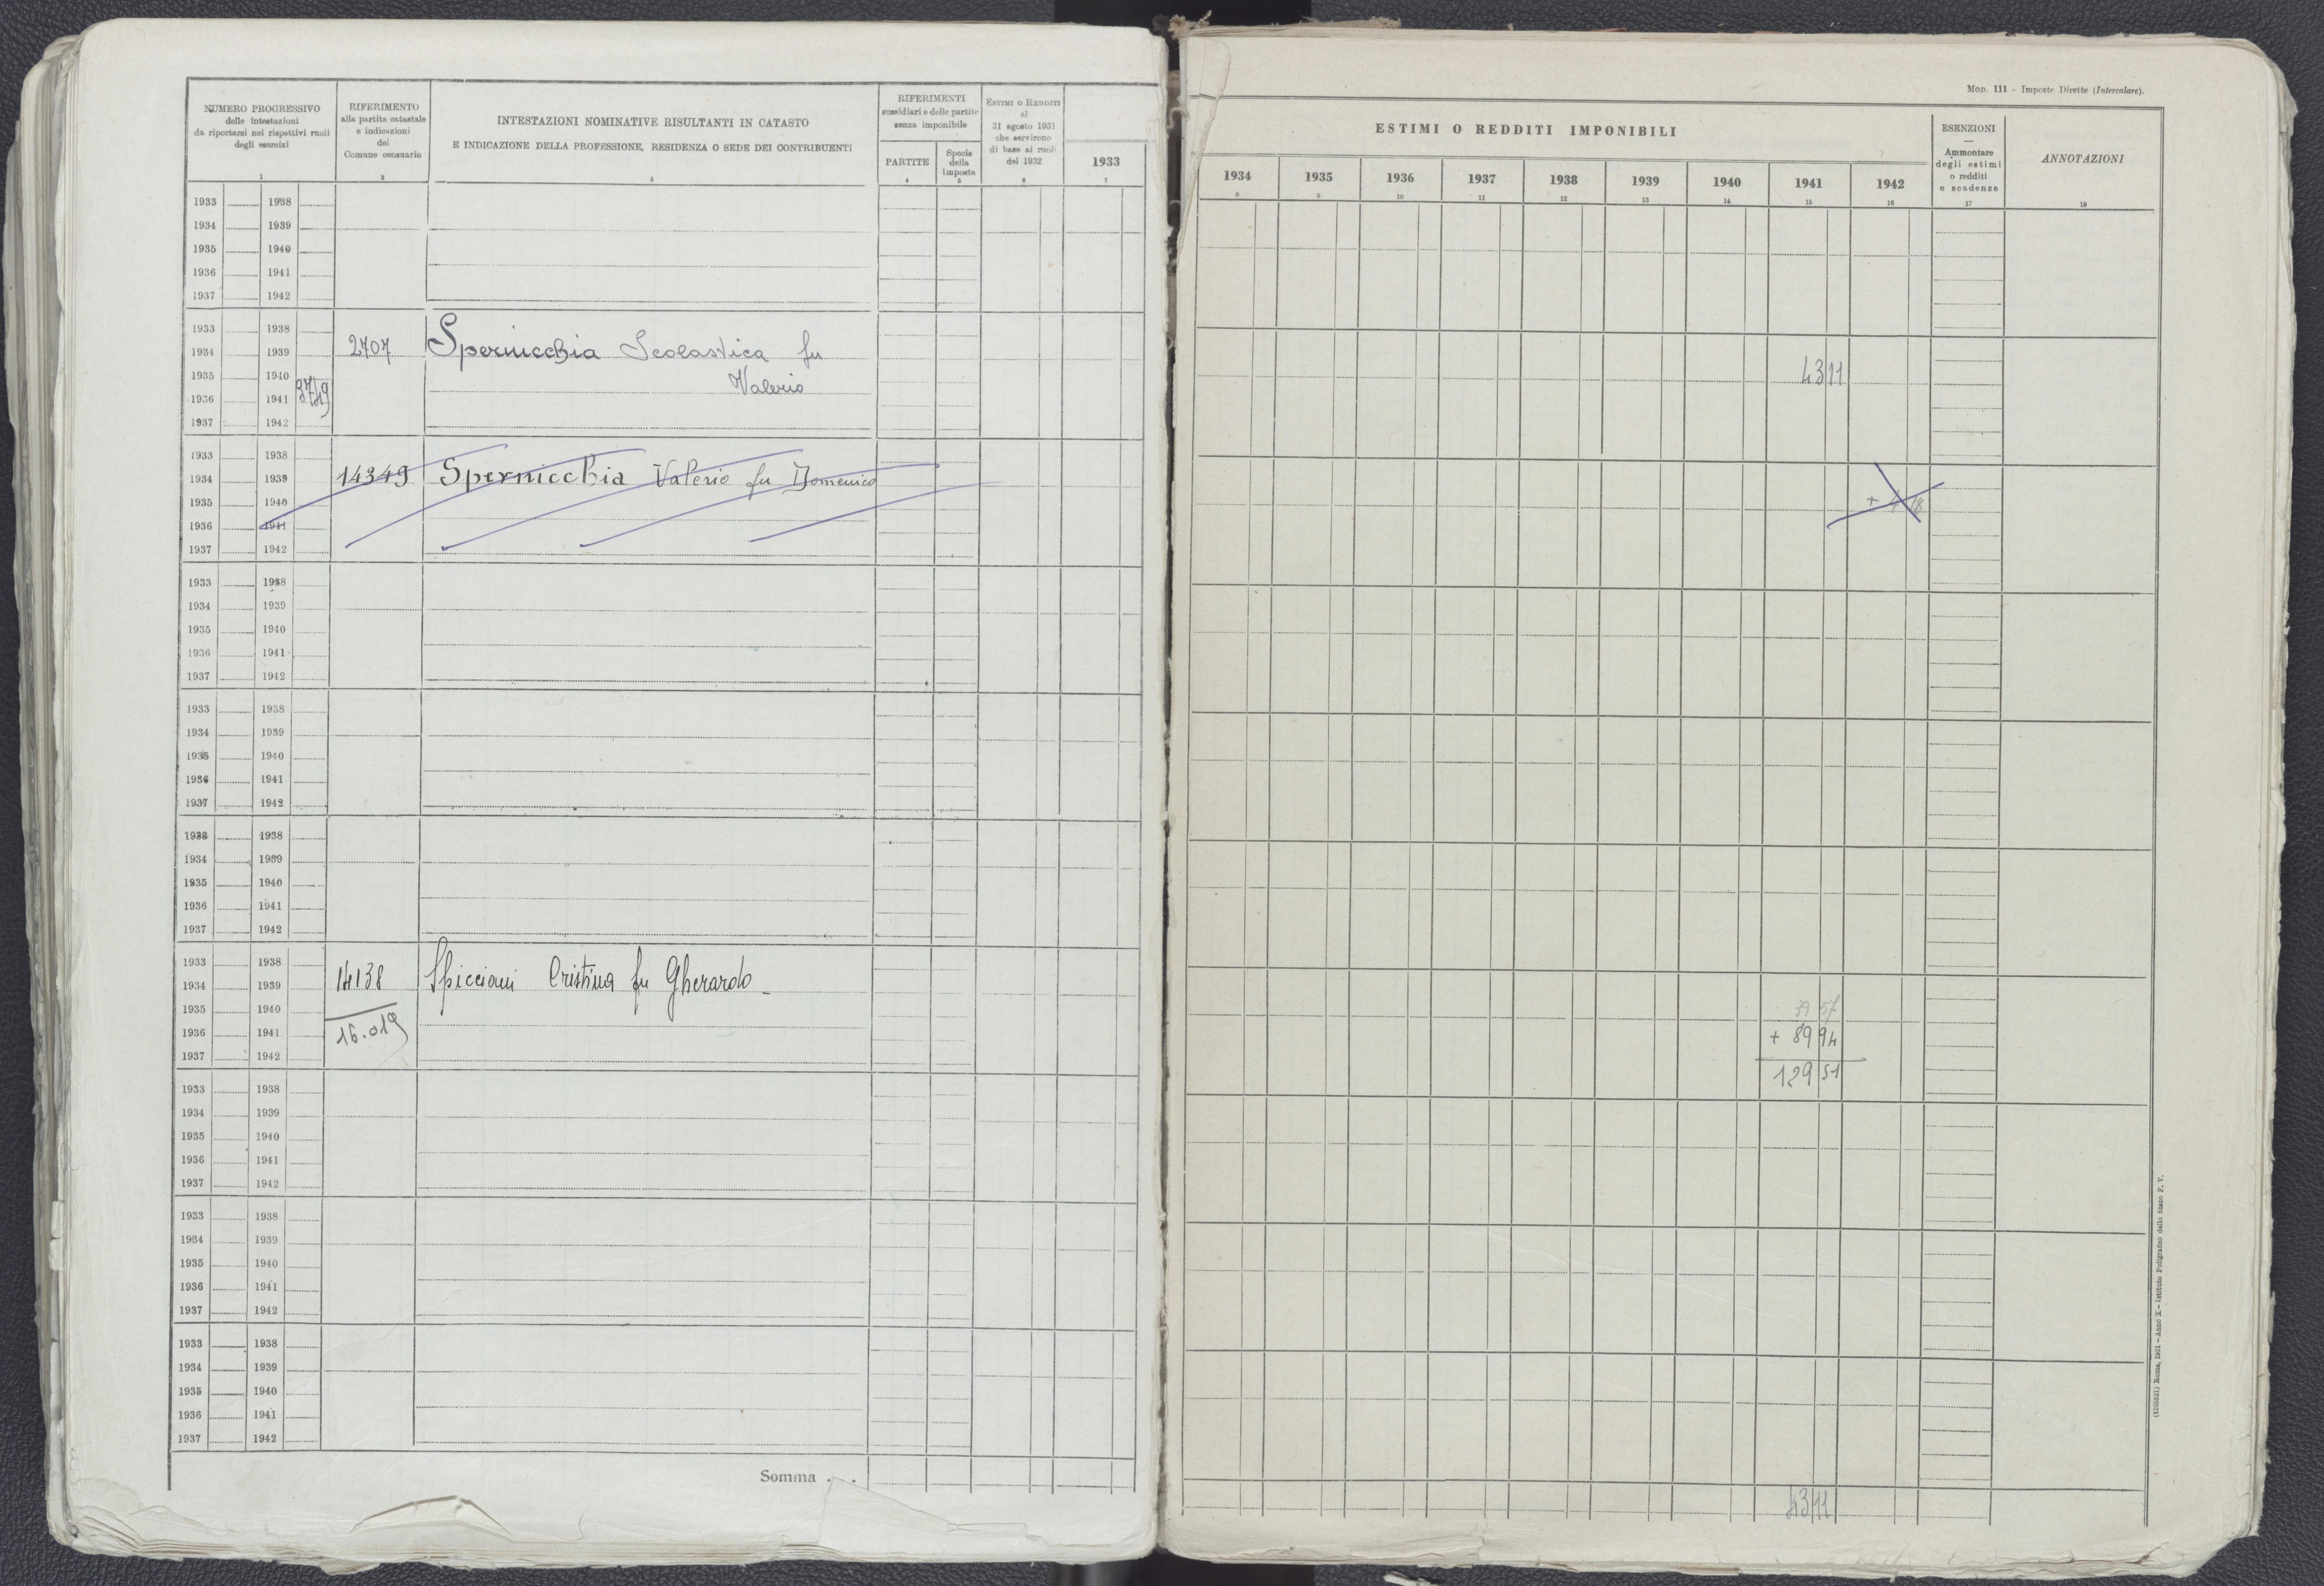 NUMERO PROGRESSIVO
delle intestazioni
da riportarsi nei rispettivi ruoli
degli esercizi
1
RIFERIMENTO
alla partita catastale
e indicazioni
del
Comune censuario
2
INTESTAZIONI NOMINATIVE RISULTANTI IN CATASTO
E INDICAZIONE DELLA PROFESSIONE, RESIDENZA O SEDE DEI CONTRIBUENTI
3
RIFERIMENTI
sussidiari e delle partite
senza imponibile
PARTITE
4
Specie
della
Imposta
5
ESTIMI O REDDITI
al
31 agosto 1931
che servirono
di base ai ruoli
del 1932
6
1933
7
1933 1938
1934 1939
1935 1940
1936 1941
1937 1942
1933 1938
1934 1939 2707 Spernicchia Scolastica fu
1935 1940 Valerio
1936 1941 8749
1937 1942
1933 1938
1934 1939 14349 Spernicchia Valerio fu Domenico
1935 1940
1936 1941
1937 1942
1933 1938
1934 1939
1935 1940
1936 1941
1937 1942
1933 1938
1934 1939
1935 1940
1936 1941
1937 1942
1933 1938
1934 1939
1935 1940
1936 1941
1937 1942
1933 1938
1934 1939 14138 Spicciani Cristina fu Gherardo
1935 1940
1936 1941 16.019
1937 1942
1933 1938
1934 1939
1935 1940
1936 1941
1937 1942
1933 1938
1934 1939
1935 1940
1936 1941
1937 1942
1933 1938
1934 1939
1935 1940
1936 1941
1937 1942
Somma . .
MOD. 111 - Imposte Dirette (Intercalare).
ESTIMI O REDDITI IMPONIBILI
1934 1935 1936 1937 1938 1939 1940 1941 1942
8 9 10 11 12 13 14 15 16
ESENZIONI
Ammontare
degli estimi
o redditi
e scadenze
17
ANNOTAZIONI
18
43 11
39 57
+ 89 94
129 51
43 11
Roma, 1931 - Anno X - Istituto Poligrafico dello Stato P. V.